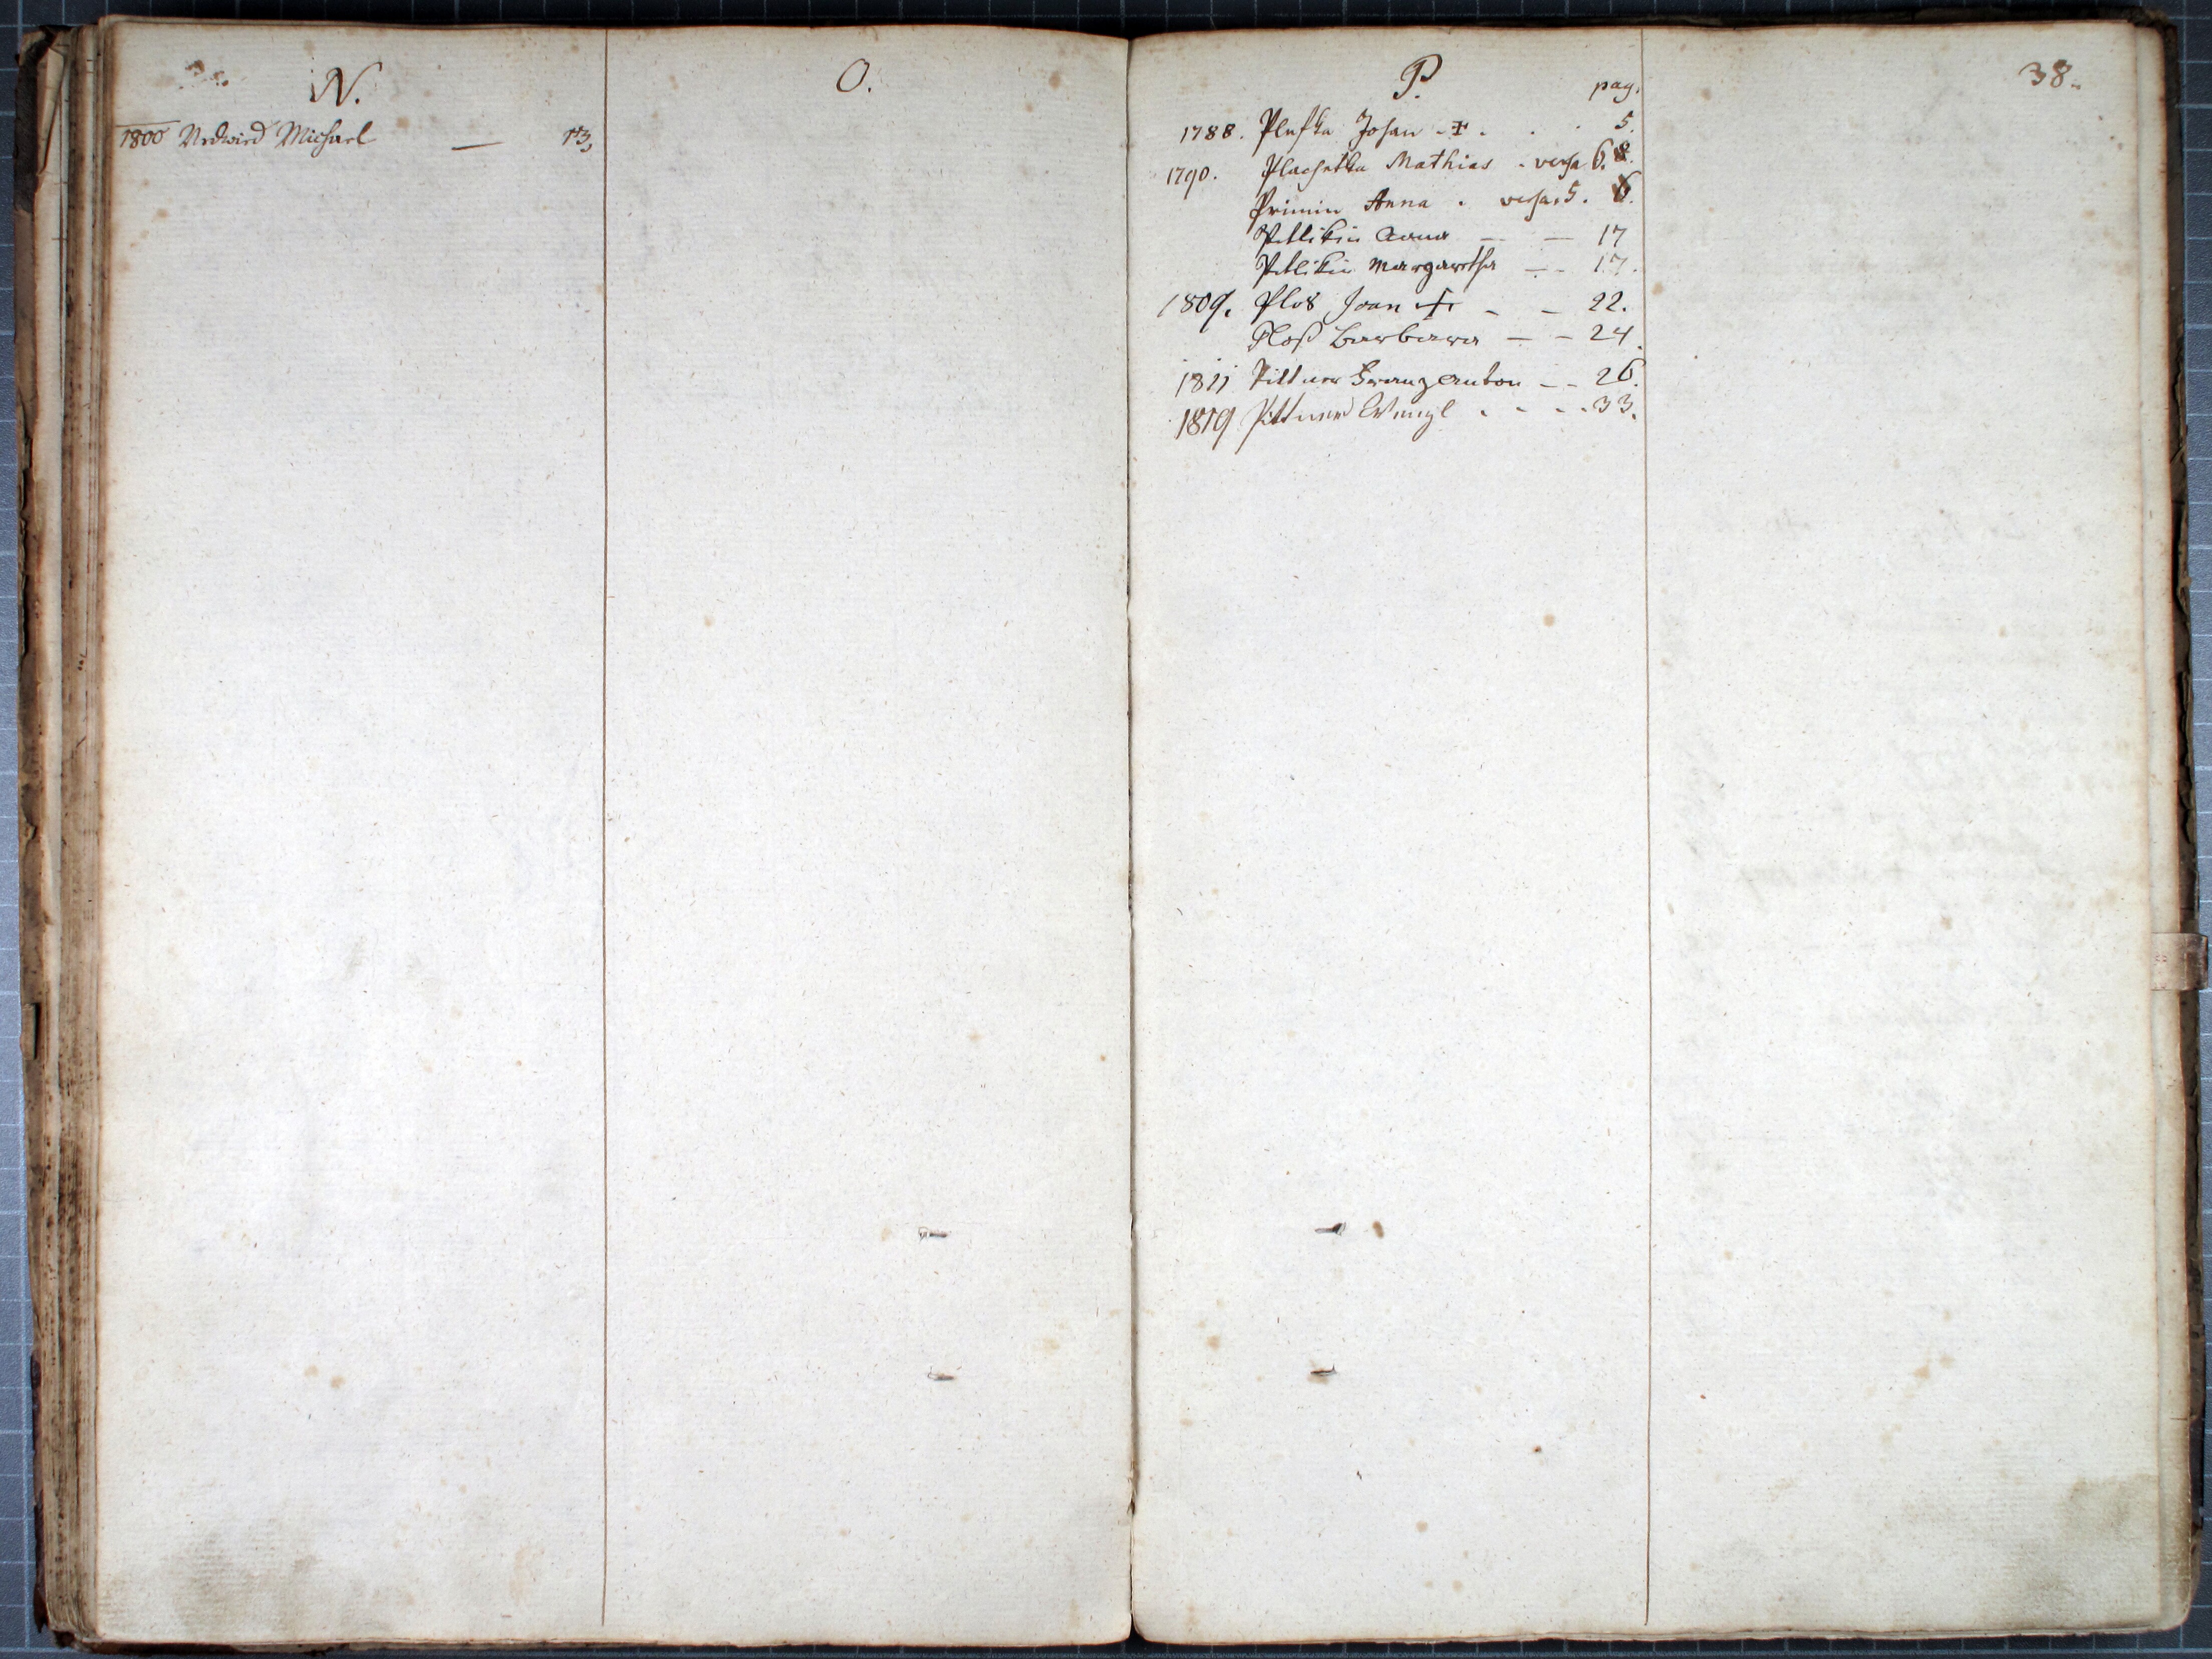 N.
1800 Nedwied Michael — 13,
O.
P. pag.
1788. Pleska Johan . + . . . 5.
1790. Plachetka Mathias . versa 6. 8.
Primin Anna . versa. 5. 6.
Petlikin Anna — — 17
Petlikin Margaretha — — 17.
1809. Plos Joan + — — 22.
Ploß Barbara — — 24.
1811 Pittner Franz Anton — — 26.
1819 Pittner Wenzl . . . . 33.
38.